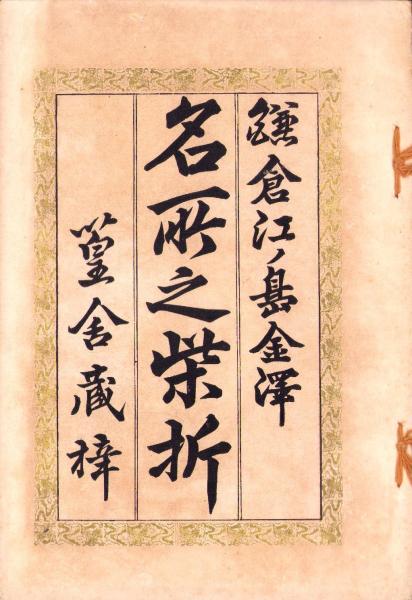 鎌倉江ノ島金澤
名所之柴折
篁舎蔵梓